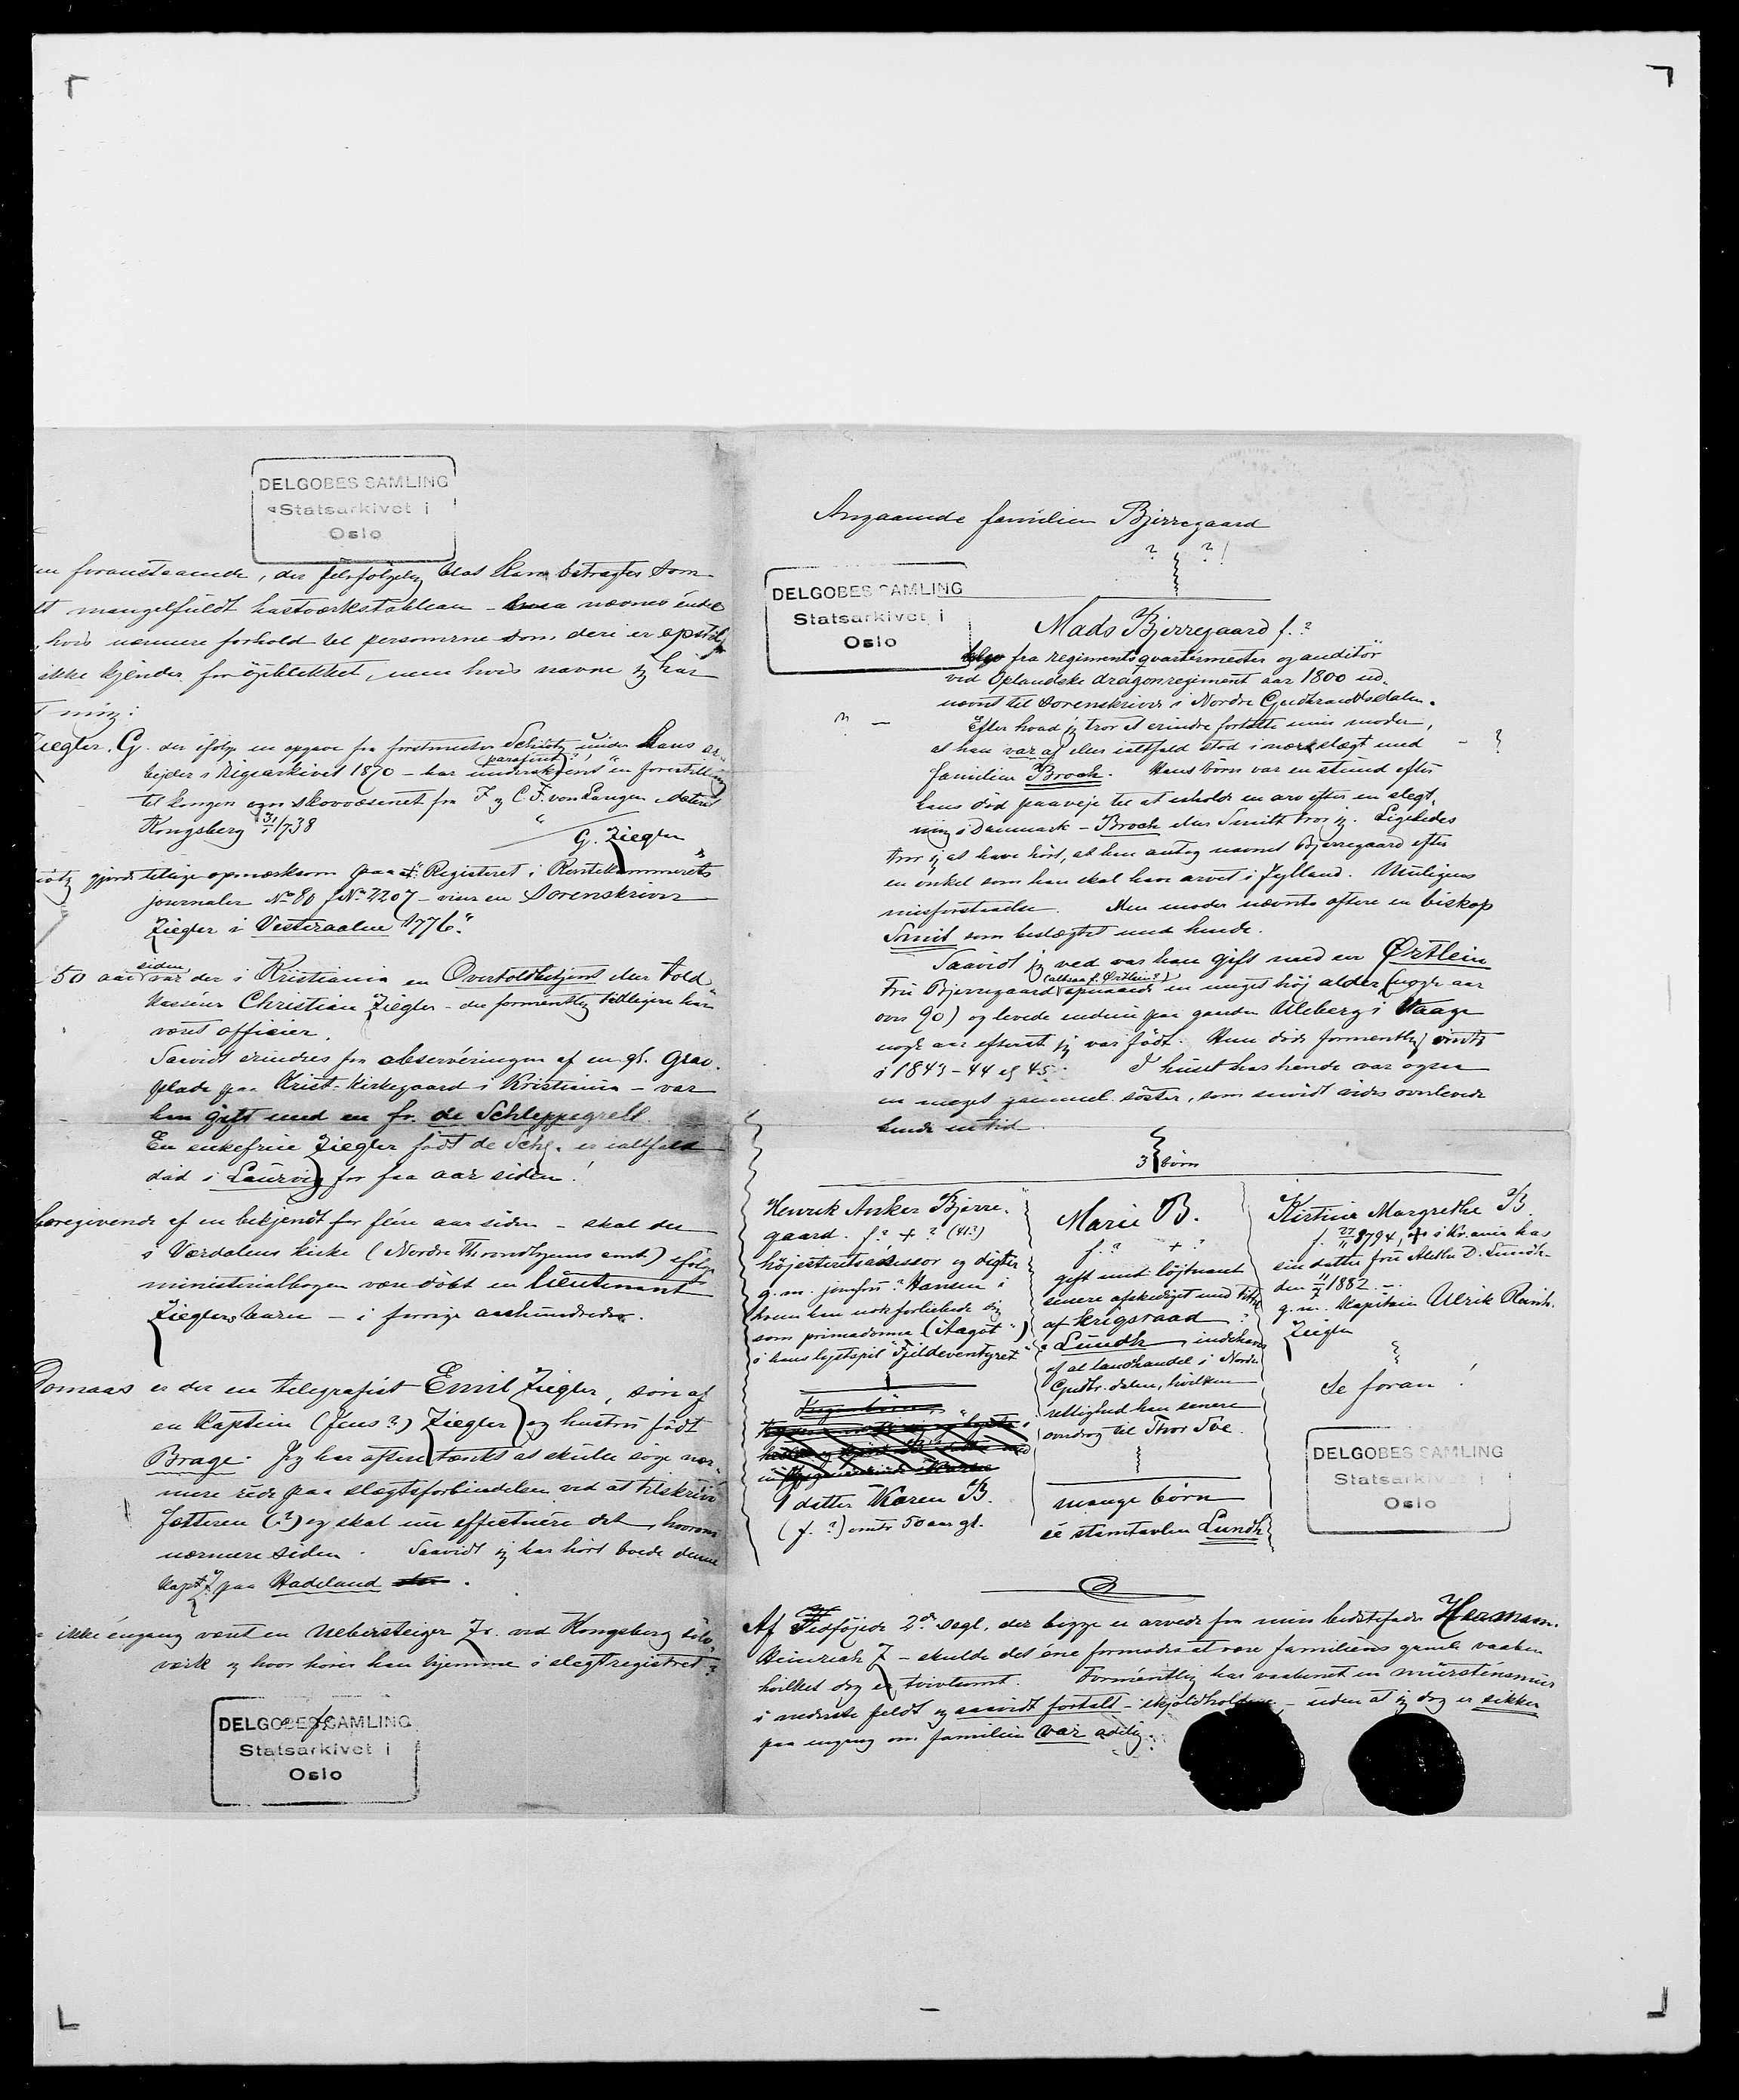 DELGOBES SAMLING
Statsarkivet i
Oslo
foranstaaende, der selvfølgelig blot kan betragtes som
mangelfuldt hastværkstableau - nævnes endel
hvis nærmere forhold til personerne som deri er opstil
ikke kjender for øjeblikket, men hvis navne jeg har
Ziegler, G. der ifølge en opgave fra forstmester Schiötz under hans ar-
bejder i rigsarkivet 1870 - har underskrevet en forestilling
parafirt?
til kongen om skovvæsenet fra J. og C. F. von Langen dateret
Kongsberg 31/1 1738
G. Ziegler
gjorde tillige opmærksom paa at "Registeret i Rentekammerets
journaler No 80 No 2207 - viser en Sorenskriver
Ziegler i Vesteraalen 1776."
50 aar siden var der i Kristiania en Overtoldbetjent eller told-
kasserer Christian Ziegler - der formentlig tidligere har
været officier.
Saavidt erindres fra observeringen af en gl. grav-
plade paa Krist-kirkegaard i Kristiania - var
han gift med en fr. de Schleppegrell.
En enkefrue Ziegler født de Sch. er ialtfald
død i Laurvig for faa aar siden!
foregivende af en bekjendt for flere aar siden - skal der
i Værdalens kirke (Nordre Throndhjems amt) ifølge
ministerialbogen være døbt en lieutenant
Zieglers barn - i forrige aarhundrede.
Domaas er der en telegrafist Emil Ziegler, søn af
en kaptein (Jens?) Ziegler og hustru født
Brage. Jeg har oftere tænkt at skulle søge nær-
mere rede paa slægtsforbindelsen ved at tilskrive
fætteren (?) og skal nu effectuere det, hvorom
nærmere siden. Saavidt jeg har hørt boede denne
kapt. Z. paa Hadeland
ikke engang været en Uebersteiger Zr. ved Kongsberg sølv-
værk og hvor hører han hjemme i slegtregistret?
DELGOBES SAMLING
Statsarkivet i
Oslo
Angaaende familien Bjerregaard
? ?!
DELGOBES SAMLING
Statsarkivet i
Oslo
Mads Bjerregaard f.?
fra regimentsqvartermester og auditør
ved Oplandske dragonregiment aar 1800 ud-
nævnt til sorenskriver i Nordre Gudbrandsdalen.
Efter hvad jeg tror at erindre fortalte min moder,
at han var af eller ialtfald stod i nær slægt med
familien Broch. Hans børn var en stund efter
hans død paaveje til at erholde en arv efter en slegt-
ning i Danmark - Broch eller Smith tror jeg. Ligeledes
tror jeg at have hørt, at han antog navnet Bjerregaard efter
en onkel som han skal have arvet i Jylland. Muligens
misforstaaelse. Men moder nævnte oftere en biskop
Smit som beslægtet med hende.
Saavidt jeg ved var han gift med en Ørtlein
(altsaa f. Ørtlein?)
Fru Bjerregaard opnaaede en meget høj alder (nogle aar
over 90) og levede endnu paa gaarden Uleberg i Vaage
nogle aar efterat jeg var født. Hun døde formentlig omtr
i 1843-44 el 45. I huset hos hende var ogsaa
en meget gammel søster, som saavidt vides overlevede
hende en tid.
3 børn
Henrik Anker Bjerre-
gaard. f.? + ? (41?)
højesteretsassessor og digter
g. m. jomfru? Hansen i
hvem han nok forliebede sig
som primadonna ("Aagot")
i hans lystspil "Fjeldeventyret"
1 datter Karen B.
(f. ?) omtr 50 aar gl.
Marie B.
f.? + ?
gift med løjtnant
senere afskediget med titel
af krigsraad ?
Lundh, indehaver
af al landhandel i Nordre
Gudbr. dalen, hvilken
rettighed han senere
overdrog til Thor Toe.
mange børn
se stamtavlen Lundh
Kirstine Margrethe B.
f. 27/11 1794, + i Kr.ania hos
sin datter fru Alethe D. Lundh
den 11/1 1882
g. m. Kapitain Ulrik Reinh.
Ziegler
Se foran!
DELGOBES SAMLING
Statsarkivet i
Oslo
Af Vedføjede 2de segl, der begge er arvede fra min bedstefader Hermann
Heinrich Z - skulde det ene formodes at være familiens gamle vaaben
hvilket dog er tvivlsomt. Formentlig har vaabnet en murstensmur
i nederste feldt og saavidt fortalt - skjoldholdere, - uden at jeg dog er sikker
paa engang om familien var adelig.